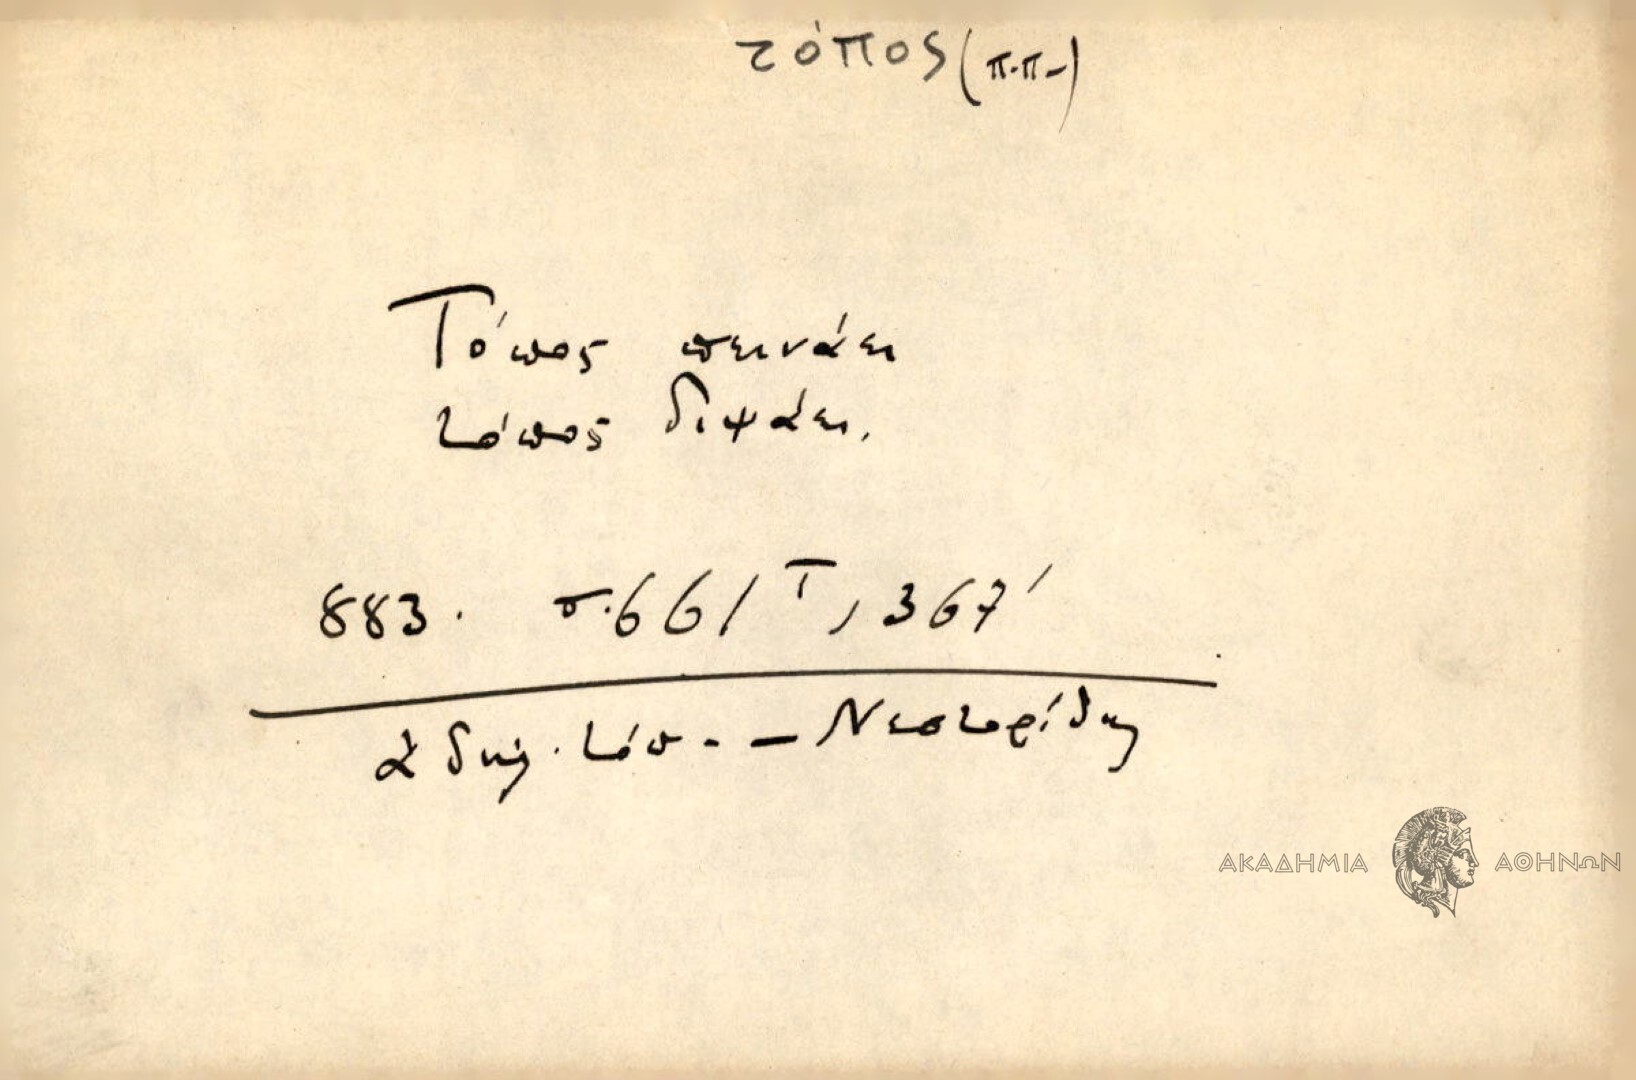 τόπος (π.π-)
Τόπος πεινάει
τόπος διψάει.
883. σ. 661 Τ, 367
ἀδήλ. τόπ. - Νεστορίδης
ΑΚΑΔΗΜΙΑ ΑΘΗΝΩΝ